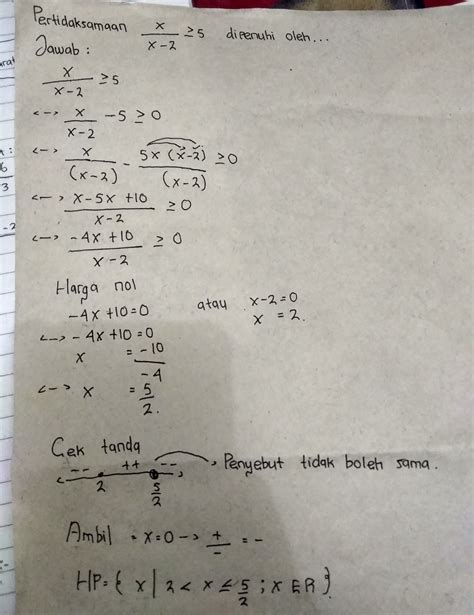 Pertidaksamaan x/(x-2) ≥ 5 dipenuhi oleh...
Jawab :
x/(x-2) ≥ 5
<--> x/(x-2) - 5 ≥ 0
<--> x/(x-2) - 5x(x-2)/(x-2) ≥ 0
<--> (x-5x+10)/(x-2) ≥ 0
<--> (-4x+10)/(x-2) ≥ 0
Harga nol
-4x+10=0 atau x-2=0
<--> -4x+10=0 x = 2.
x = -10/-4
<--> x = 5/2.
Cek tanda
-- ++ -- → Penyebut tidak boleh sama.
2 5/2
Ambil = x=0 --> +/- = -
HP={ x | 2 < x ≤ 5/2 ; x ∈ R}